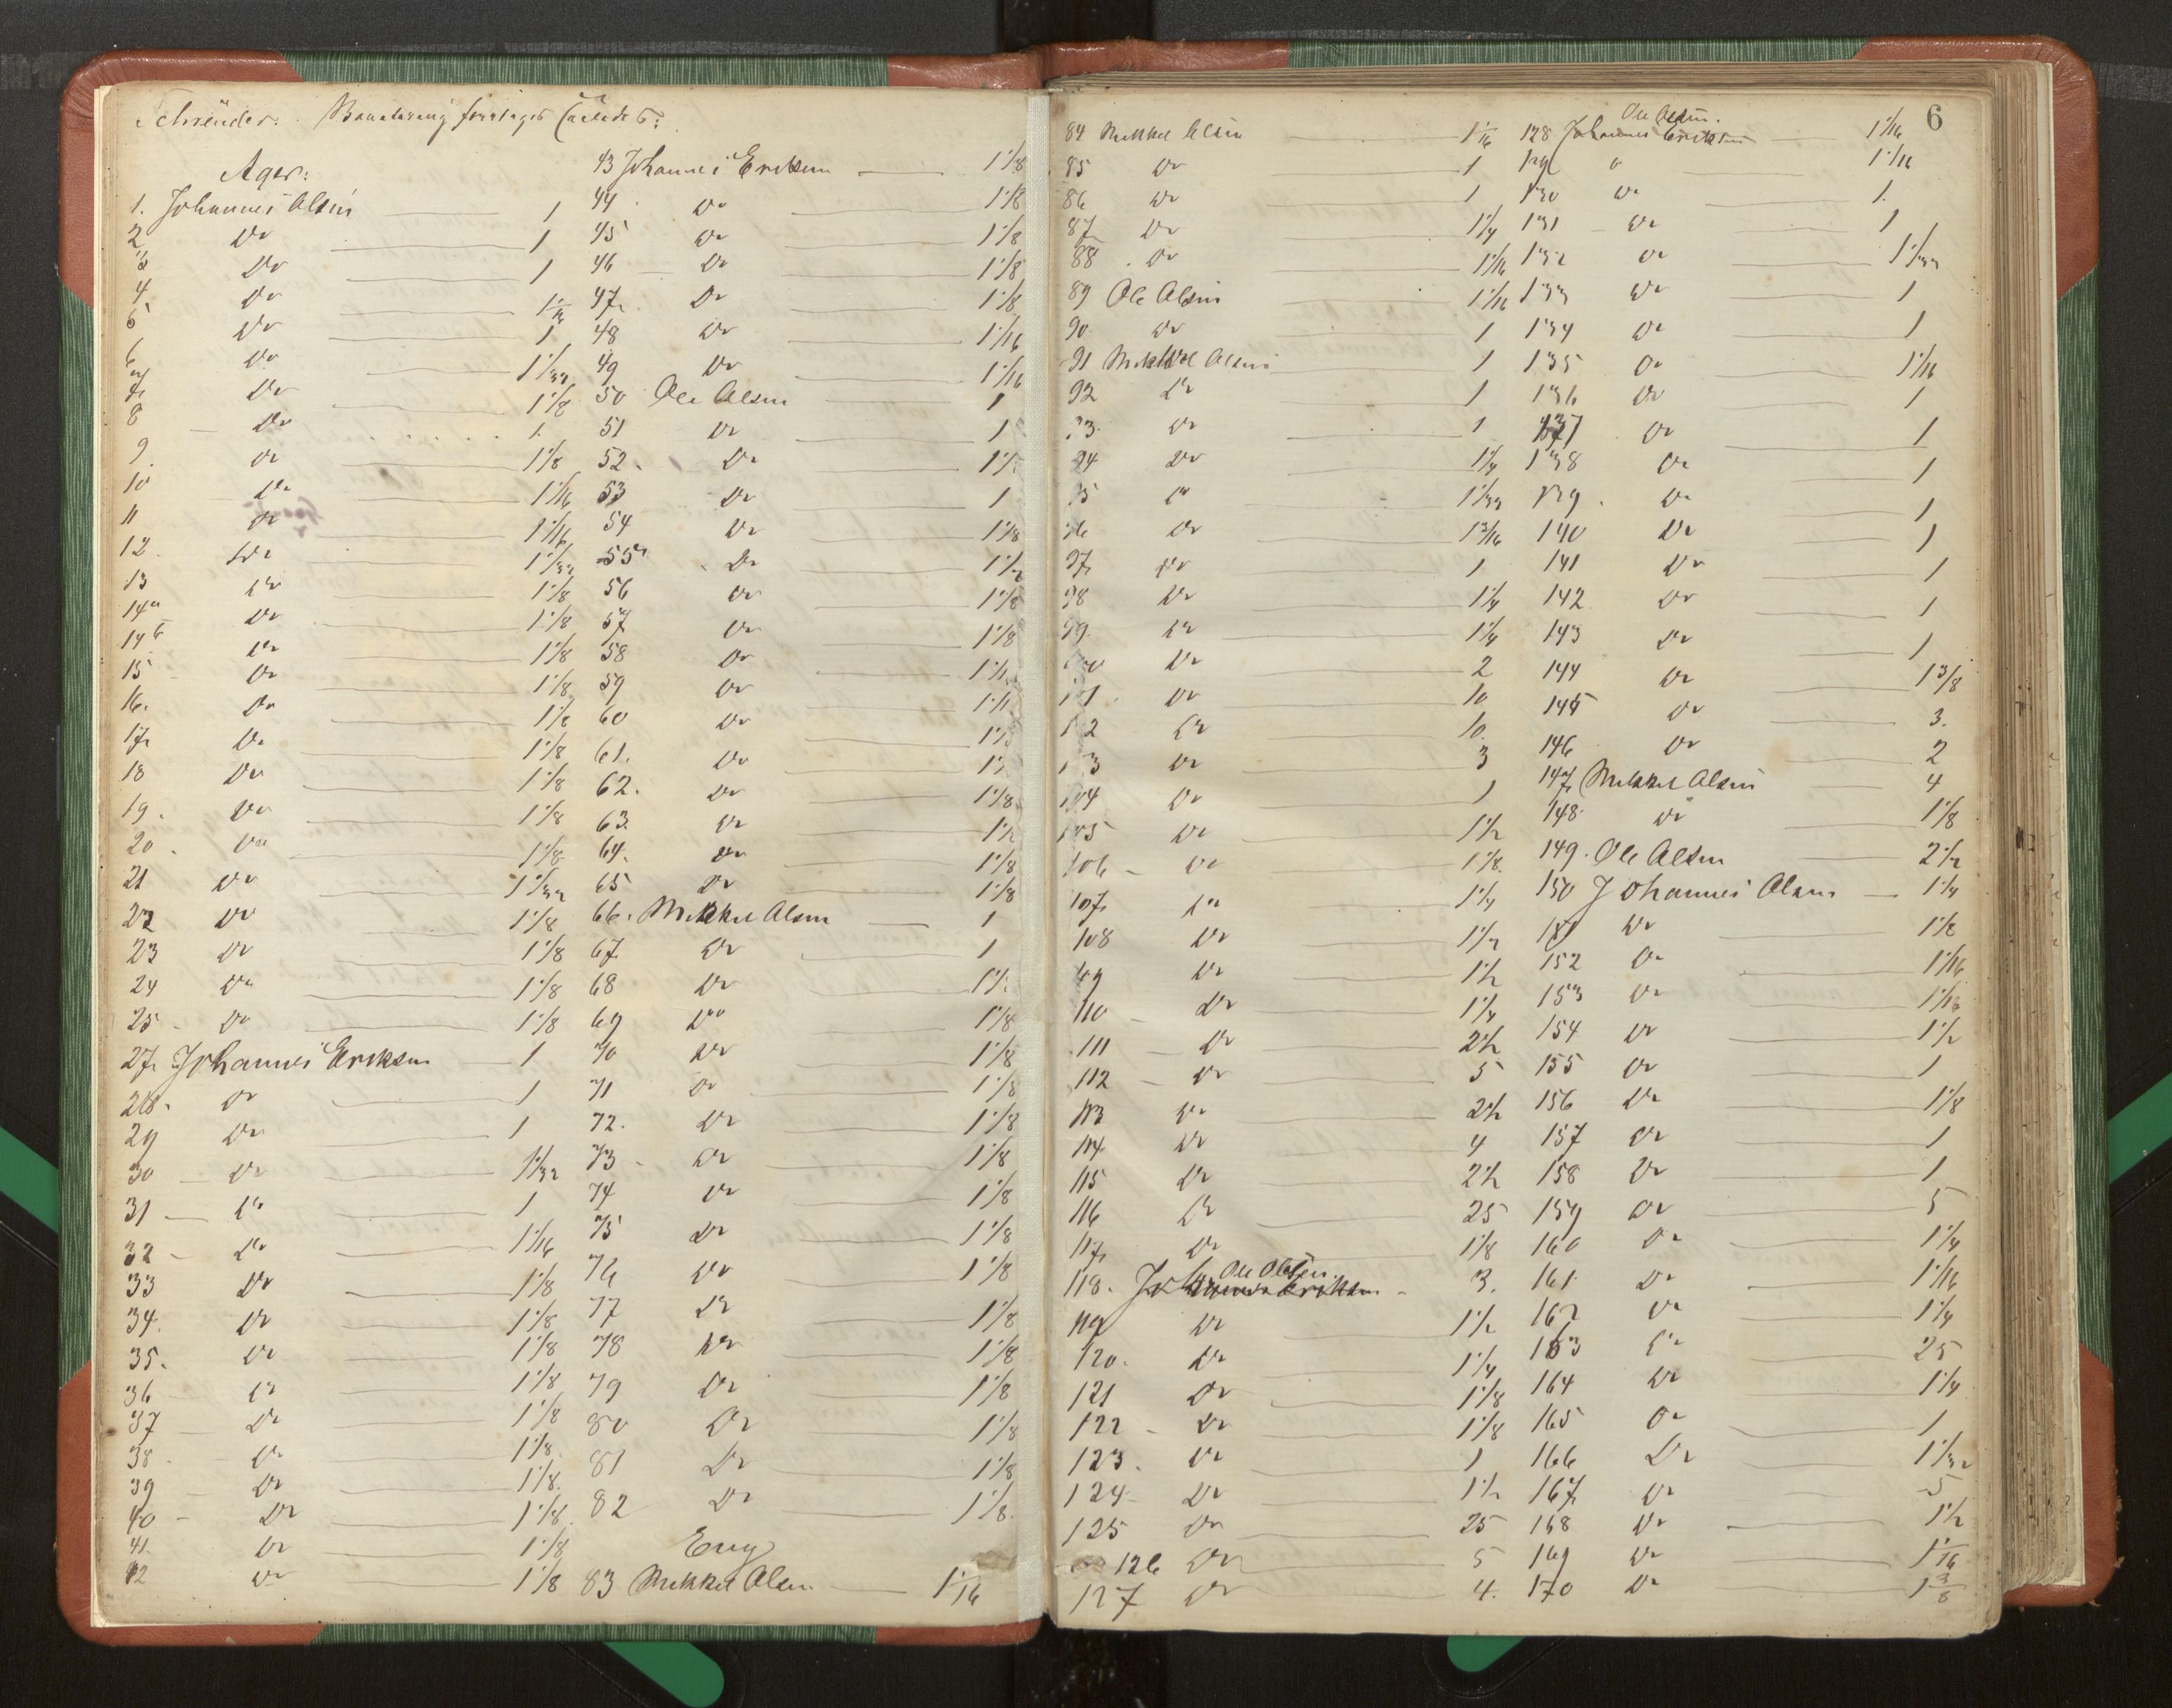 Schrøder. Bonitering foretages saaledes:
Ager:
1. Johannes Olsen 1
2 Do 1
3 Do 1
4 Do 1 1/16
5 Do 1
6 Do 1 1/32
7 Do 1 1/8
8 Do 1
9 Do 1 1/8
10 Do 1 1/16
11 Do 1 1/16
12 Do 1 1/32
13 Do 1 1/8
14a Do 1 1/8
14b Do 1 1/8
15 Do 1 1/8
16. Do 1 1/8
17 Do 1 1/8
18 Do 1 1/8
19. Do 1 1/8
20. Do 1 1/8
21 Do 1 1/32
22 Do 1 1/8
23 Do 1 1/8
24 Do 1 1/8
25 Do 1 1/8
27 Johannes Eriksen 1
28. Do 1
29 Do 1
30 Do 1 1/32
31 Do 1
32 Do 1 1/16
33 Do 1 1/8
34. Do 1 1/8
35. Do 1 1/8
36 Do 1 1/8
37 Do 1 1/8
38 Do 1 1/8
39 Do 1 1/8
40 Do 1 1/8
41. Do 1 1/8
42 Do 1 1/8
43 Johannes Eriksen 1 1/8
44 Do 1 1/8
45 Do 1 1/8
46 Do 1 1/8
47 Do 1 1/8
48 Do 1 1/16
49 Do 1 1/16
50 Ole Olsen 1
51 Do 1
52. Do
53 Do 1
54 Do 1 1/8
55 Do 1 1/2
56 Do 1 1/8
57 Do 1 1/8
58 Do
59 Do
60 Do
61. Do
62. Do 1 1/8
63. Do 1 1/2
64. Do 1 1/8
65 Do 1 1/8
66. Mikkel Olsen 1
67 Do 1
68 Do
69 Do 1 1/8
70 Do 1 1/8
71 Do 1 1/8
72. Do 1 1/8
73 Do 1 1/8
74 Do 1 1/8
75 Do 1 1/8
76 Do 1 1/8
77 Do 1 1/8
78 Do 1 1/8
79 Do 1 1/8
80 Do 1 1/8
81 Do 1 1/8
82 Do 1 1/8
Eng
83 Mikkel Olsen 1 1/16
6
84 Mikkel Olsen 1 1/16
85 Do 1
86 Do 1
87 Do 1 1/4
88 Do 1 1/16
89 Ole Olsen 1 1/16
90 Do 1
91 Mikkel Olsen 1
92 Do 1
93. Do 1
94 Do 1 1/4
95 Do 1 1/32
96 Do 1 3/16
97 Do 1
98 Do 1 1/4
99 Do 1 1/4
100 Do 2
101 Do 10
102 Do 10
103 Do 3
104 Do 1
105 Do 1 1/2
106 Do 1 1/8
107 Do 1 1/4
108 Do 1 1/2
109 Do 1 1/2
110 Do 1 1/4
111 Do 2 1/2
112 Do 5
113 Do 2 1/2
114 Do 4
115 Do 2 1/2
116 Do 25
117 Do 1 1/8
Ole Olsen
118. Johannes Eriksen 3.
119 Do 1 1/2
120. Do 1 1/4
121 Do 1 1/8
122 Do 1 1/8
123. Do 1
124 Do 1 1/2
125 Do 25
126 Do 5
127 Do 4.
Ole Olsen.
128 Johannes Eriksen 1 1/16
129 Do 1 1/16
130 Do 1.
131 Do 1
132 Do 1 1/32
133 Do 1
134 Do 1
135 Do 1 1/16
136 Do 1
137 Do 1
138 Do 1
139. Do 1
140 Do 1
141 Do 1
142 Do 1
143 Do 1
144 Do 1 3/8
145 Do 3.
146 Do 2
147 Mikkel Olsen 4
148. Do 1 1/8
149. Ole Olsen 2 1/2
150 Johannes Olsen 1 1/4
151 Do 1 1/8
152 Do 1 1/16
153 Do 1 1/16
154 Do 1 1/2
155 Do 1
156 Do 1 1/8
157 Do 1
158 Do 1
159 Do 5
160 Do 1 1/4
161 Do 1 1/16
162 Do 1 1/4
163 Do 25
164 Do 1 1/4
165 Do 1
166 Do 1 1/32
167 Do 5
168 Do 1 1/2
169 Do 1 1/16
170 Do 1 3/8